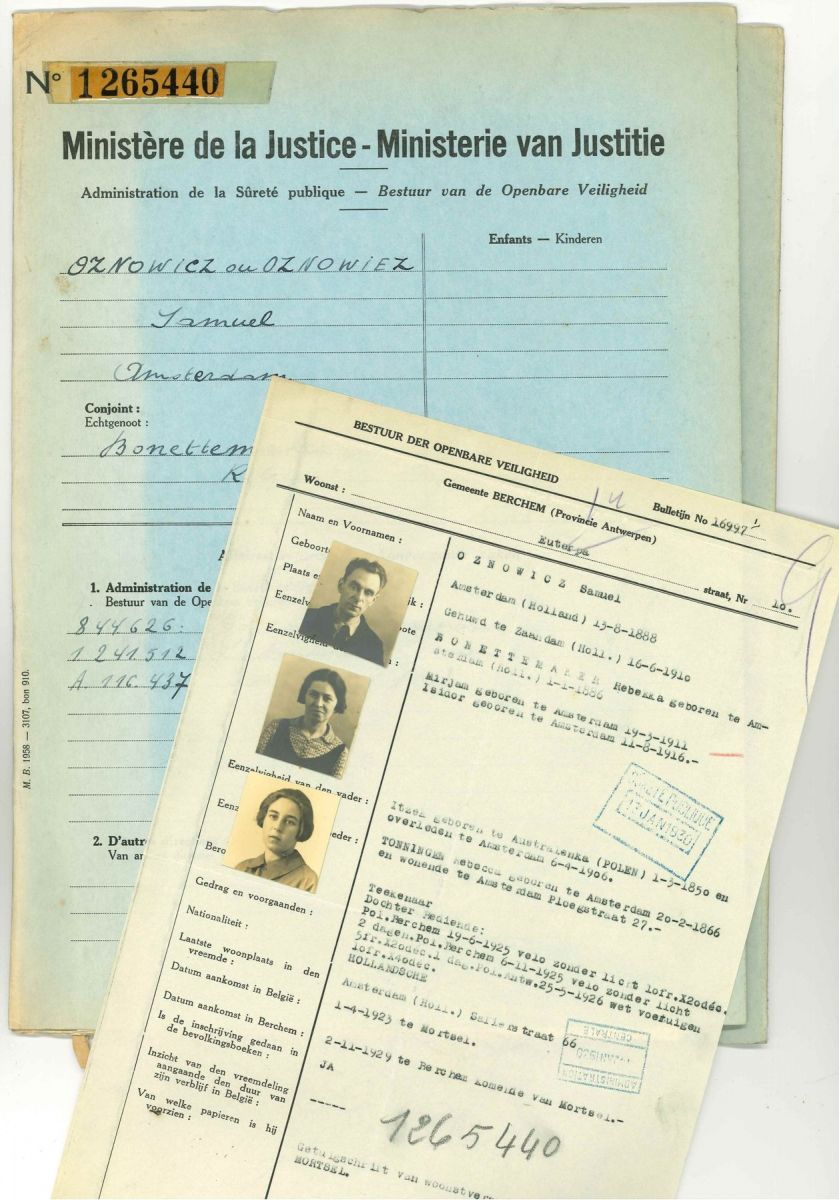 N° 1265440
Ministère de la Justice - Ministerie van Justitie
Administration de la Sûreté publique — Bestuur van de Openbare Veiligheid
Enfants — Kinderen
OZNOWICZ ou OZNOWIEZ
Samuel
Amsterdam
Conjoint :
Echtgenoot :
Bonettem
R
A
1. Administration de
Bestuur van de Ope
844626.
1 241.512
A 116.437
2. D'autre
Van an
M. B. 1958 — 3107, bon 910.
BESTUUR DER OPENBARE VEILIGHEID
Gemeente BERCHEM (Provincie Antwerpen)
Bulletijn No 16997
Woonst : Euterpe straat, Nr 10.
Naam en Voornamen :
OZNOWICZ Samuel
Geboort
Plaats e
Amsterdam (Holland) 13-8-1888
Eenzelv
Gehuwd te Zaandam (Holl.) 16-6-1910
Eenzelvigheid
BONETTEMAKER Rebekka geboren te Am-
sterdam (Holl.) 1-1-1886
Mirjam geboren te Amsterdam 19-3-1911
Isidor geboren te Amsterdam 11-8-1916.-
SURETE PUBLIQUE
13 JAN 1930
Eenzelvigheid van den vader :
Itzek geboren te Australenka (POLEN) 1-3-1850 en
overleden te Amsterdam 6-4-1906.
Eenz
eder :
TONNINGEN Rebecca geboren te Amsterdam 20-2-1866
en wonende te Amsterdam Ploegstraat 27.-
Bero
Teekenaar
Dochter Bediende:
Gedrag en voorgaanden :
Pol.Berchem 19-6-1925 velo zonder licht 10fr.X20déc.
2 dagen.Pol.Berchem 6-11-1925 velo zonder licht
5fr.X20déc.1 dag.Pol.Antw.25-5-1926 wet voertuigen
10fr.X40déc.
Nationaliteit :
HOLLANDSCHE
Laatste woonplaats in den
vreemde :
Amsterdam (Holl.) straat 66
Datum aankomst in België :
1-4-1923 te Mortsel.
Datum aankomst in Berchem :
2-11-1929 te Berchem komende van Mortsel.-
Is de inschrijving gedaan in
de bevolkingsboeken :
JA
Inzicht van den vreemdeling
aangaande den duur van
zijn verblijf in België :
-----
Van welke papieren is hij
voorzien :
Getuigschrift van woonstver
MORTSEL.
ADMINISTRATION
CENTRALE
1265440